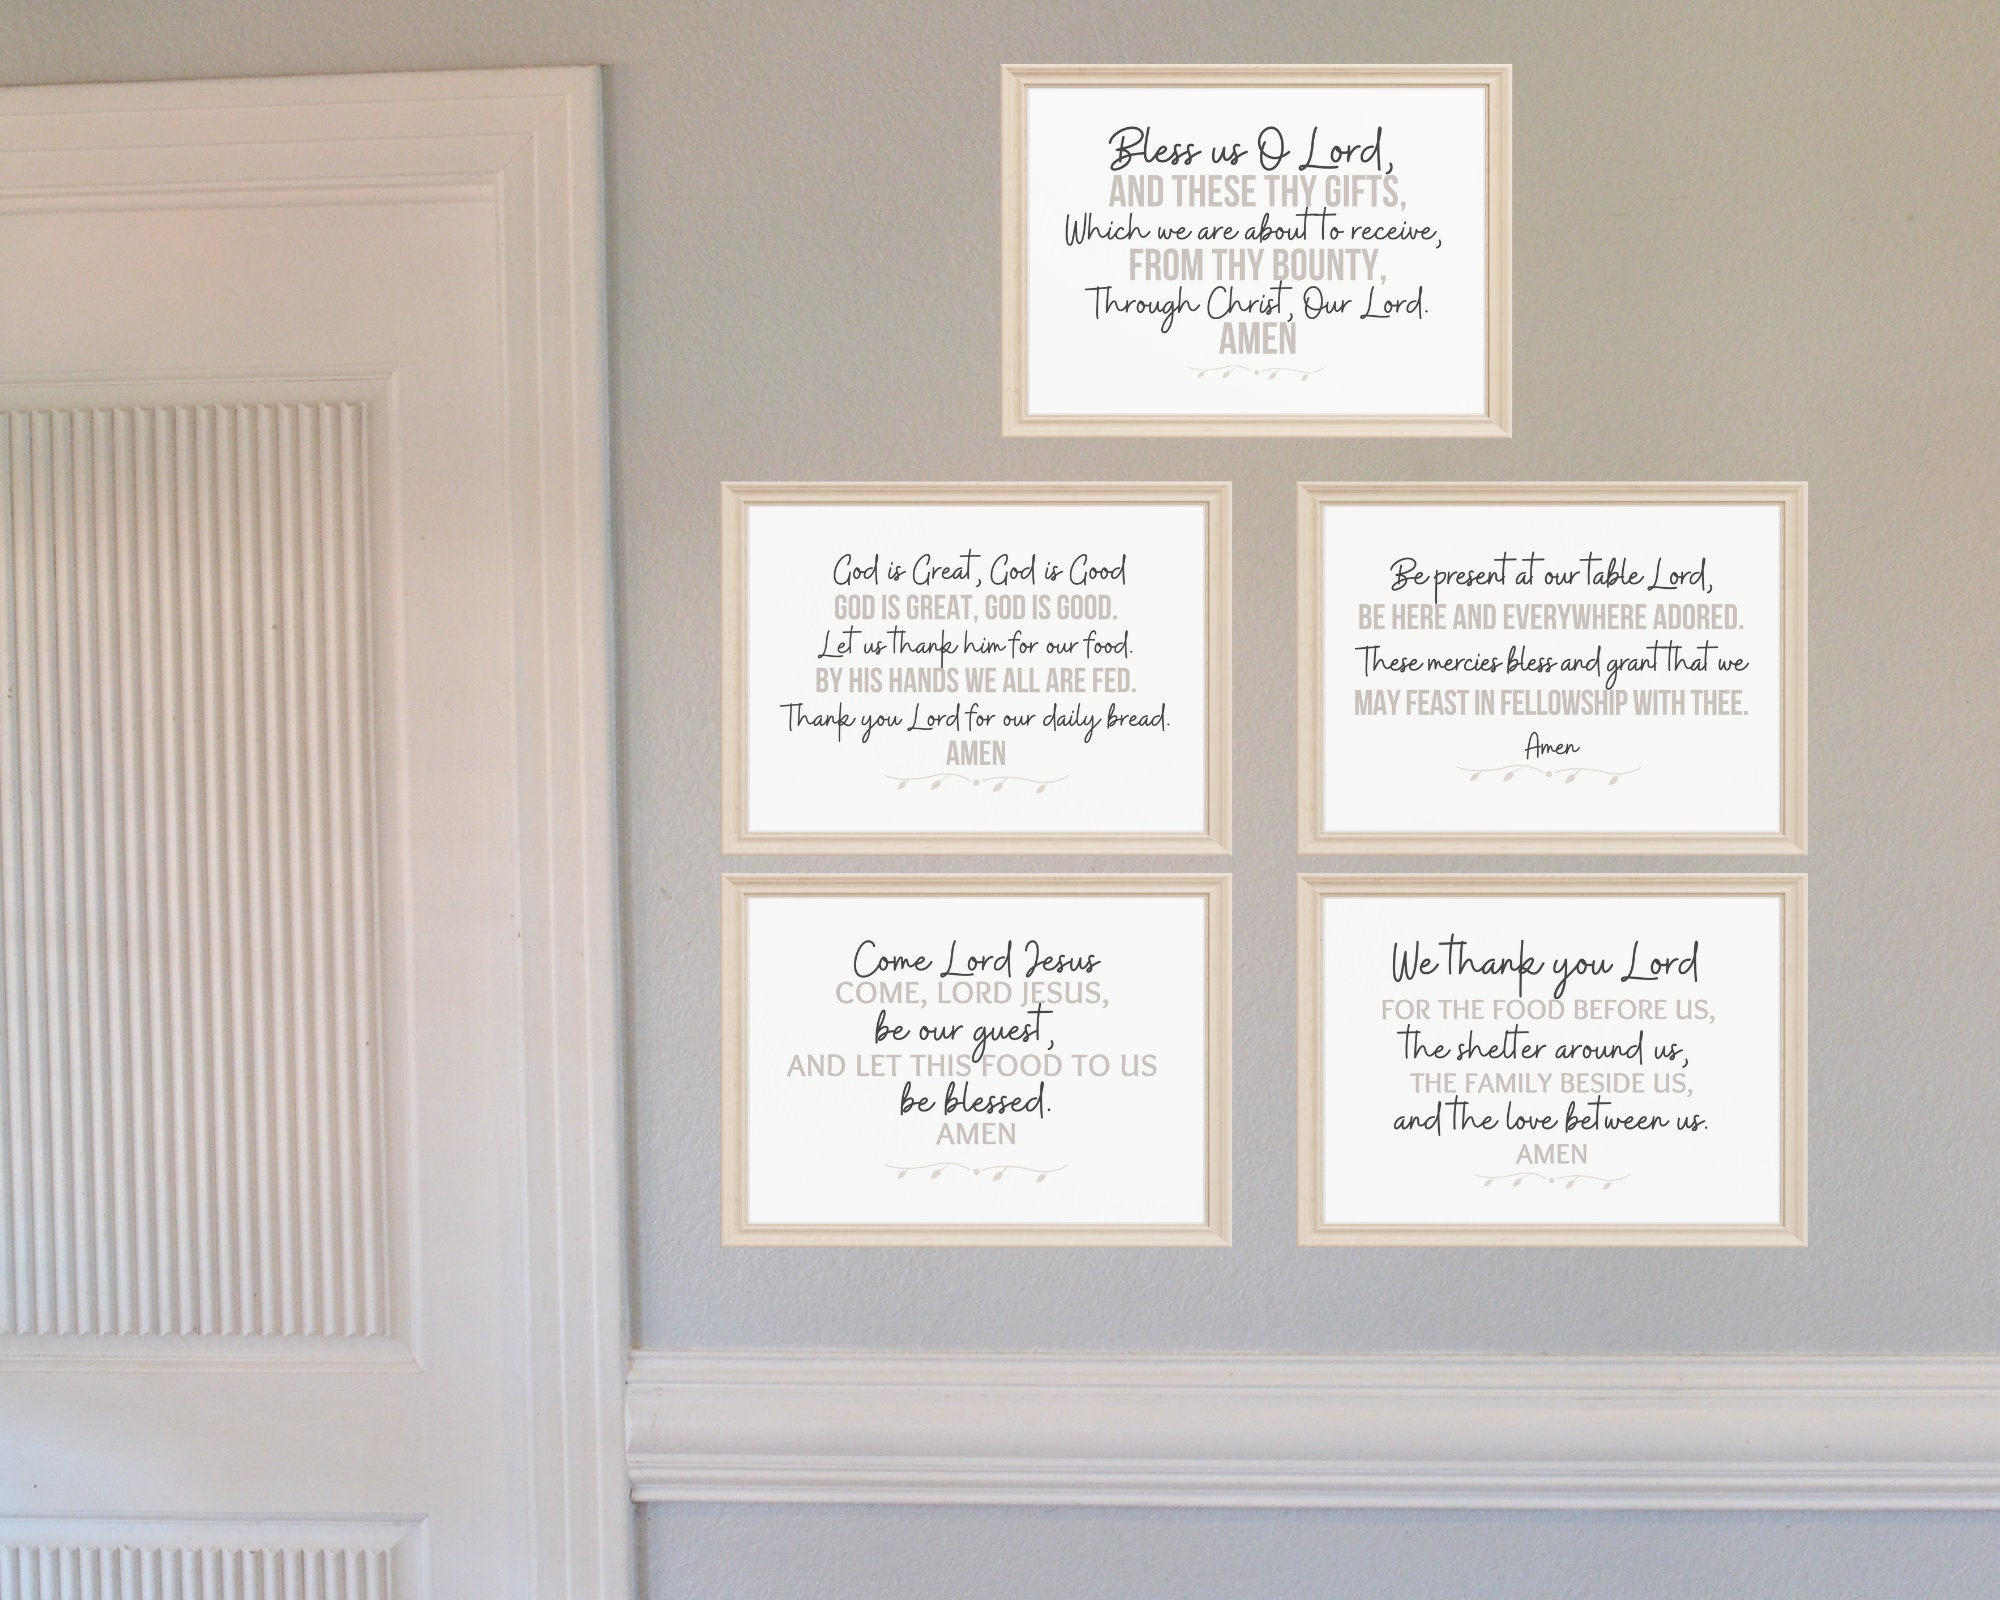 Bless us O Lord,
AND THESE THY GIFTS,
Which we are about to receive,
FROM THY BOUNTY,
Through Christ, Our Lord.
AMEN
God is Great, God is Good
GOD IS GREAT, GOD IS GOOD.
Let us thank him for our food.
BY HIS HANDS WE ALL ARE FED.
Thank you Lord for our daily bread.
AMEN
Be present at our table Lord,
BE HERE AND EVERYWHERE ADORED.
These mercies bless and grant that we
MAY FEAST IN FELLOWSHIP WITH THEE.
Amen
Come Lord Jesus
COME, LORD JESUS,
be our guest,
AND LET THIS FOOD TO US
be blessed.
AMEN
We thank you Lord
FOR THE FOOD BEFORE US,
the shelter around us,
THE FAMILY BESIDE US,
and the love between us.
AMEN